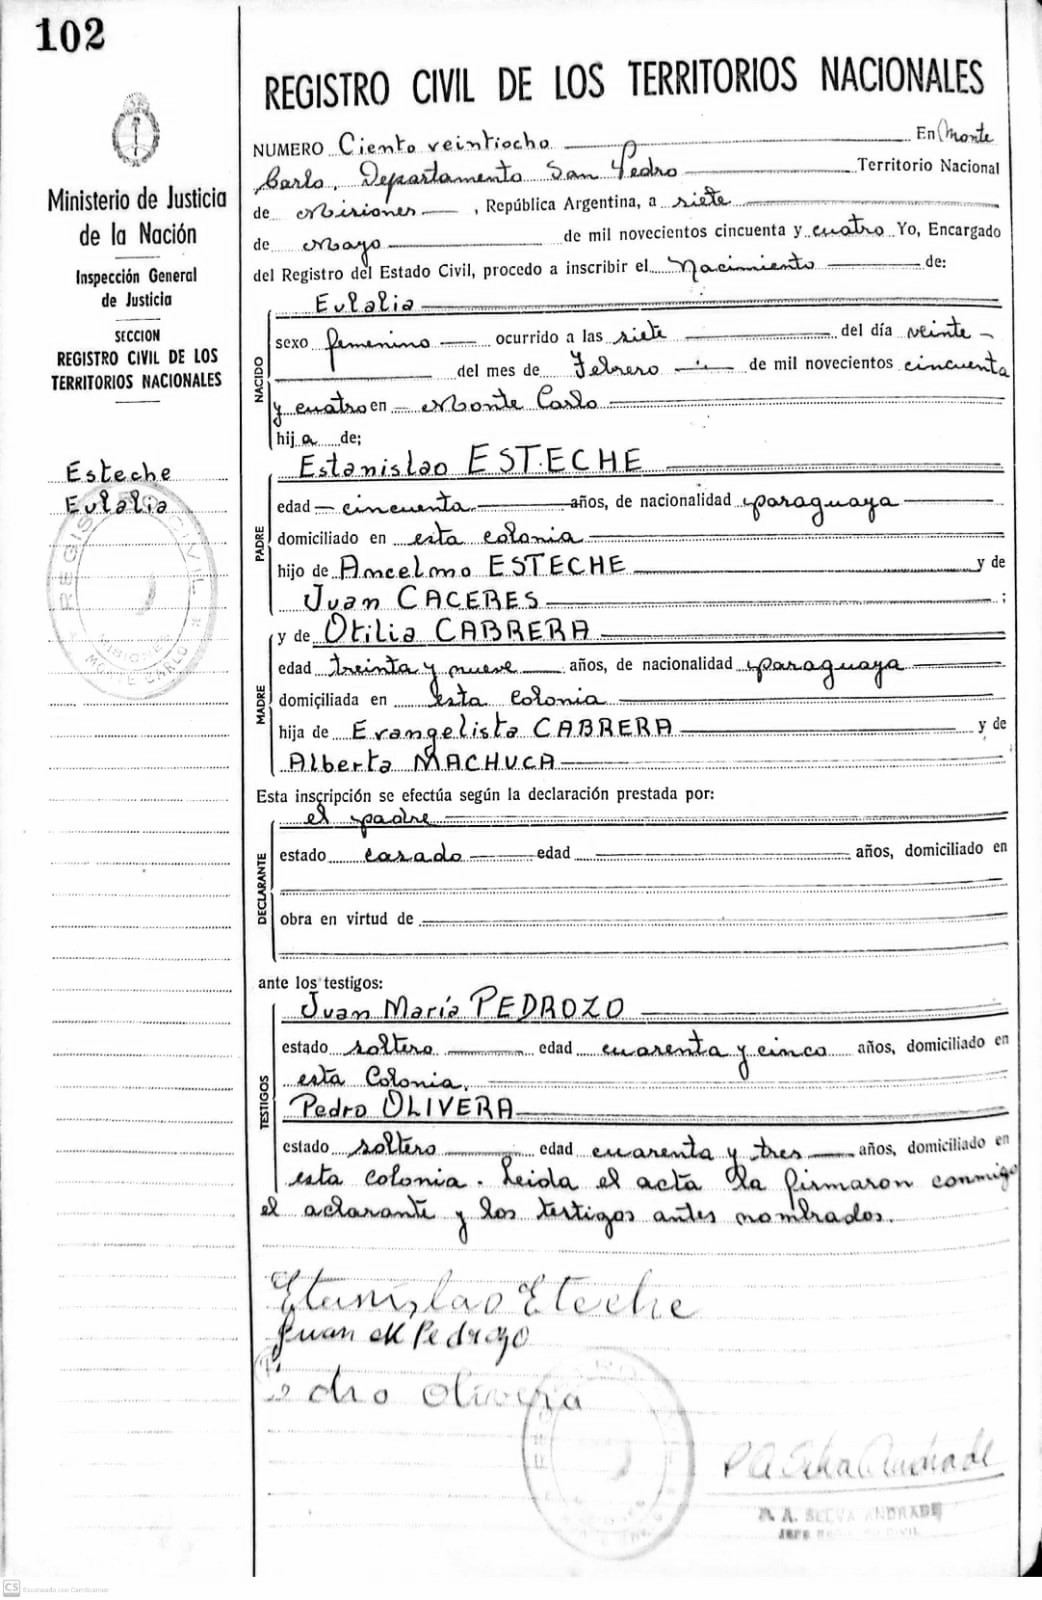 102
Ministerio de Justicia
de la Nación
Inspección General
de Justicia
SECCION
REGISTRO CIVIL DE LOS
TERRITORIOS NACIONALES
Esteche
Eulalia
REGISTRO CIVIL
MISIONES
MONTE CARLO
REGISTRO CIVIL DE LOS TERRITORIOS NACIONALES
NUMERO Ciento veintiocho En Monte
Carlo, Departamento San Pedro Territorio Nacional
de Misiones, República Argentina, a siete
de Mayo de mil novecientos cincuenta y cuatro Yo, Encargado
del Registro del Estado Civil, procedo a inscribir el Nacimiento de:
NACIDO
Eulalia
sexo femenino ocurrido a las siete del día veinte
del mes de Febrero de mil novecientos cincuenta
y cuatro en Monte Carlo
hija de;
PADRE
Estanislao ESTECHE
edad cincuenta años, de nacionalidad paraguaya
domiciliado en esta colonia
hijo de Ancelmo ESTECHE y de
Juan CACERES ;
MADRE
y de Otilia CABRERA
edad treinta y nueve años, de nacionalidad paraguaya
domiciliada en esta Colonia
hija de Evangelista CABRERA y de
Alberta MACHUCA
Esta inscripción se efectúa según la declaración prestada por:
DECLARANTE
el padre
estado casado edad años, domiciliado en
obra en virtud de
ante los testigos:
TESTIGOS
Juan María PEDROZO
estado soltero edad cuarenta y cinco años, domiciliado en
esta Colonia.
Pedro OLIVERA
estado soltero edad cuarenta y tres años, domiciliado en
esta colonia. Leida el acta la firmaron conmigo
el aclarante y los testigos antes nombrados.
Etanislao Eteche
Juan M Pedrozo
Pedro Olivera
P A Selva Andrade
P. A. SELVA ANDRADE
JEFE REGISTRO CIVIL
CS Escaneado con CamScanner